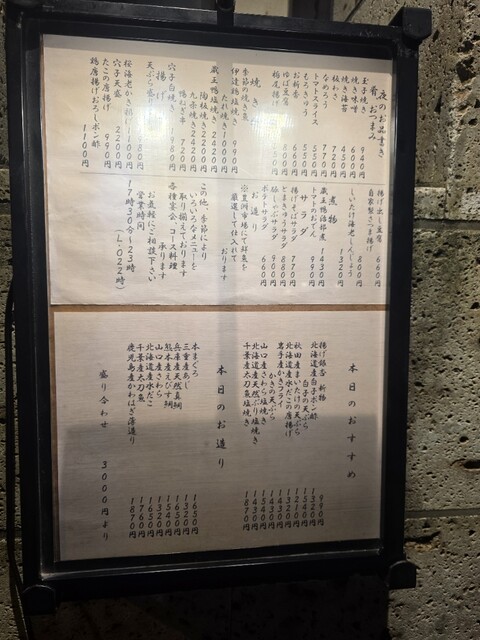 夜のお品書き
肴 おつまみ
玉子焼き 940円
焼き味噌 600円
焼き海苔 450円
板わさ 720円
なめろう 770円
トマトスライス 550円
もろきゅう 550円
お新香 660円
ゆば豆腐 800円
栃尾揚げ
焼き
季節の焼き
伊達鶏塩焼き 990円
蔵王鴨塩焼き 2420円
陶板焼き 2200円
九条焼き 2420円
鴨ねぎ串 720円
穴子白焼き 1980円
揚げ
天ぷら盛り
桜海老かき揚げ
穴子天盛 2200円
たこの唐揚げ 990円
鶏唐揚げおろしポン酢 1100円
揚げ出し豆腐 660円
自家製さつま揚げ 800円
しいたけ海老しんじょう 1320円
煮物
蔵王鴨治部煮 1430円
トマトのおでん 990円
サラダ
揚げそばサラダ 770円
とまきゅうサラダ 880円
豚しゃぶサラダ 900円
ポテトサラダ 660円
お造り
※豊洲市場にて鮮魚を
厳選して仕入れて
おります
この他、季節により
いろいろなメニューを
取り揃えております
各種宴会、コース料理
承ります
お気軽にご相談下さい
営業時間
17時30分～23時
(L.O22時)
本日のおすすめ
揚げ銀杏 新物 990円
北海道産白子ポン酢 1320円
白子の天ぷら 1540円
秋田産まいたけの天ぷら 1210円
北海道産水だこの唐揚げ 1320円
岩手産かきフライ 1430円
かきの天ぷら 1430円
山口産さわら塩焼き 1540円
北海道産天然ぶり塩焼き 1430円
千葉産太刀魚塩焼き 1870円
本日のお造り
本まぐろ 1650円
三重産あじ 1320円
兵庫産天然真鯛 1650円
熊本産えびす鯛 1540円
山口産さわら 1320円
北海道産水だこ 1650円
千葉産太刀魚 1760円
鹿児島産かわはぎ薄造り 1870円
盛り合わせ 3000円より